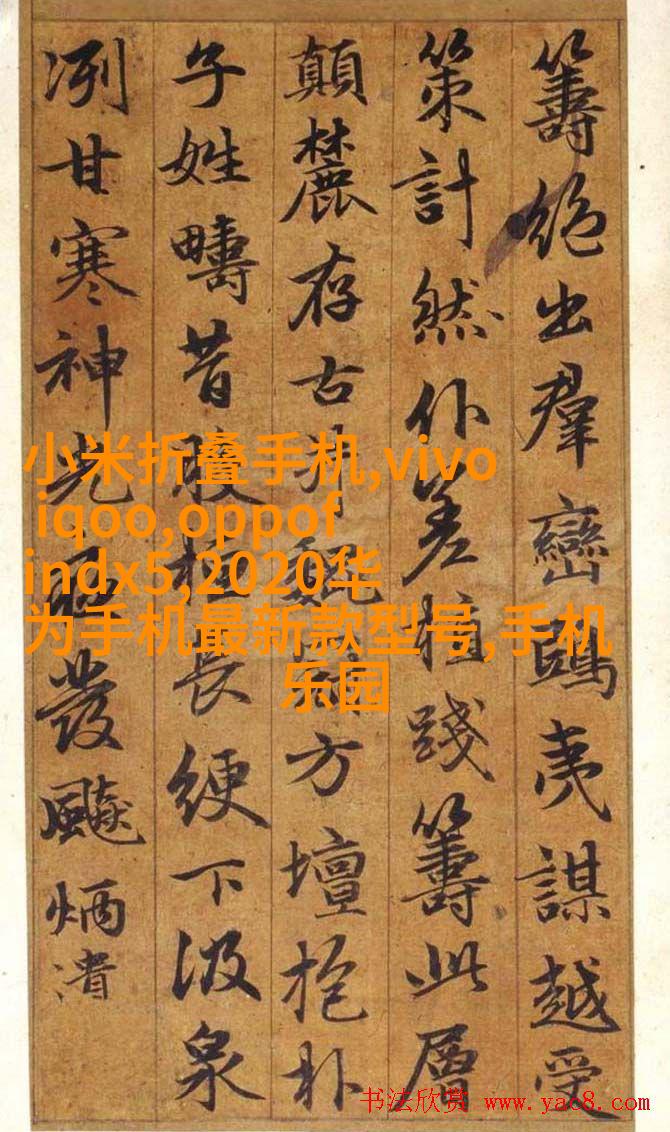 籌絕出羣巒鷗夷謀越受
策計然仆差拉踐籌此層
顛麓存古井方壇抱朴
子姓疇昔股長綆下汲泉
冽甘寒神光發飈炳潰
小米折叠手机,vivo
iqoo,oppof
indx5,2020华
为手机最新款型号,手机
乐园
书法欣赏 www.yac8.com